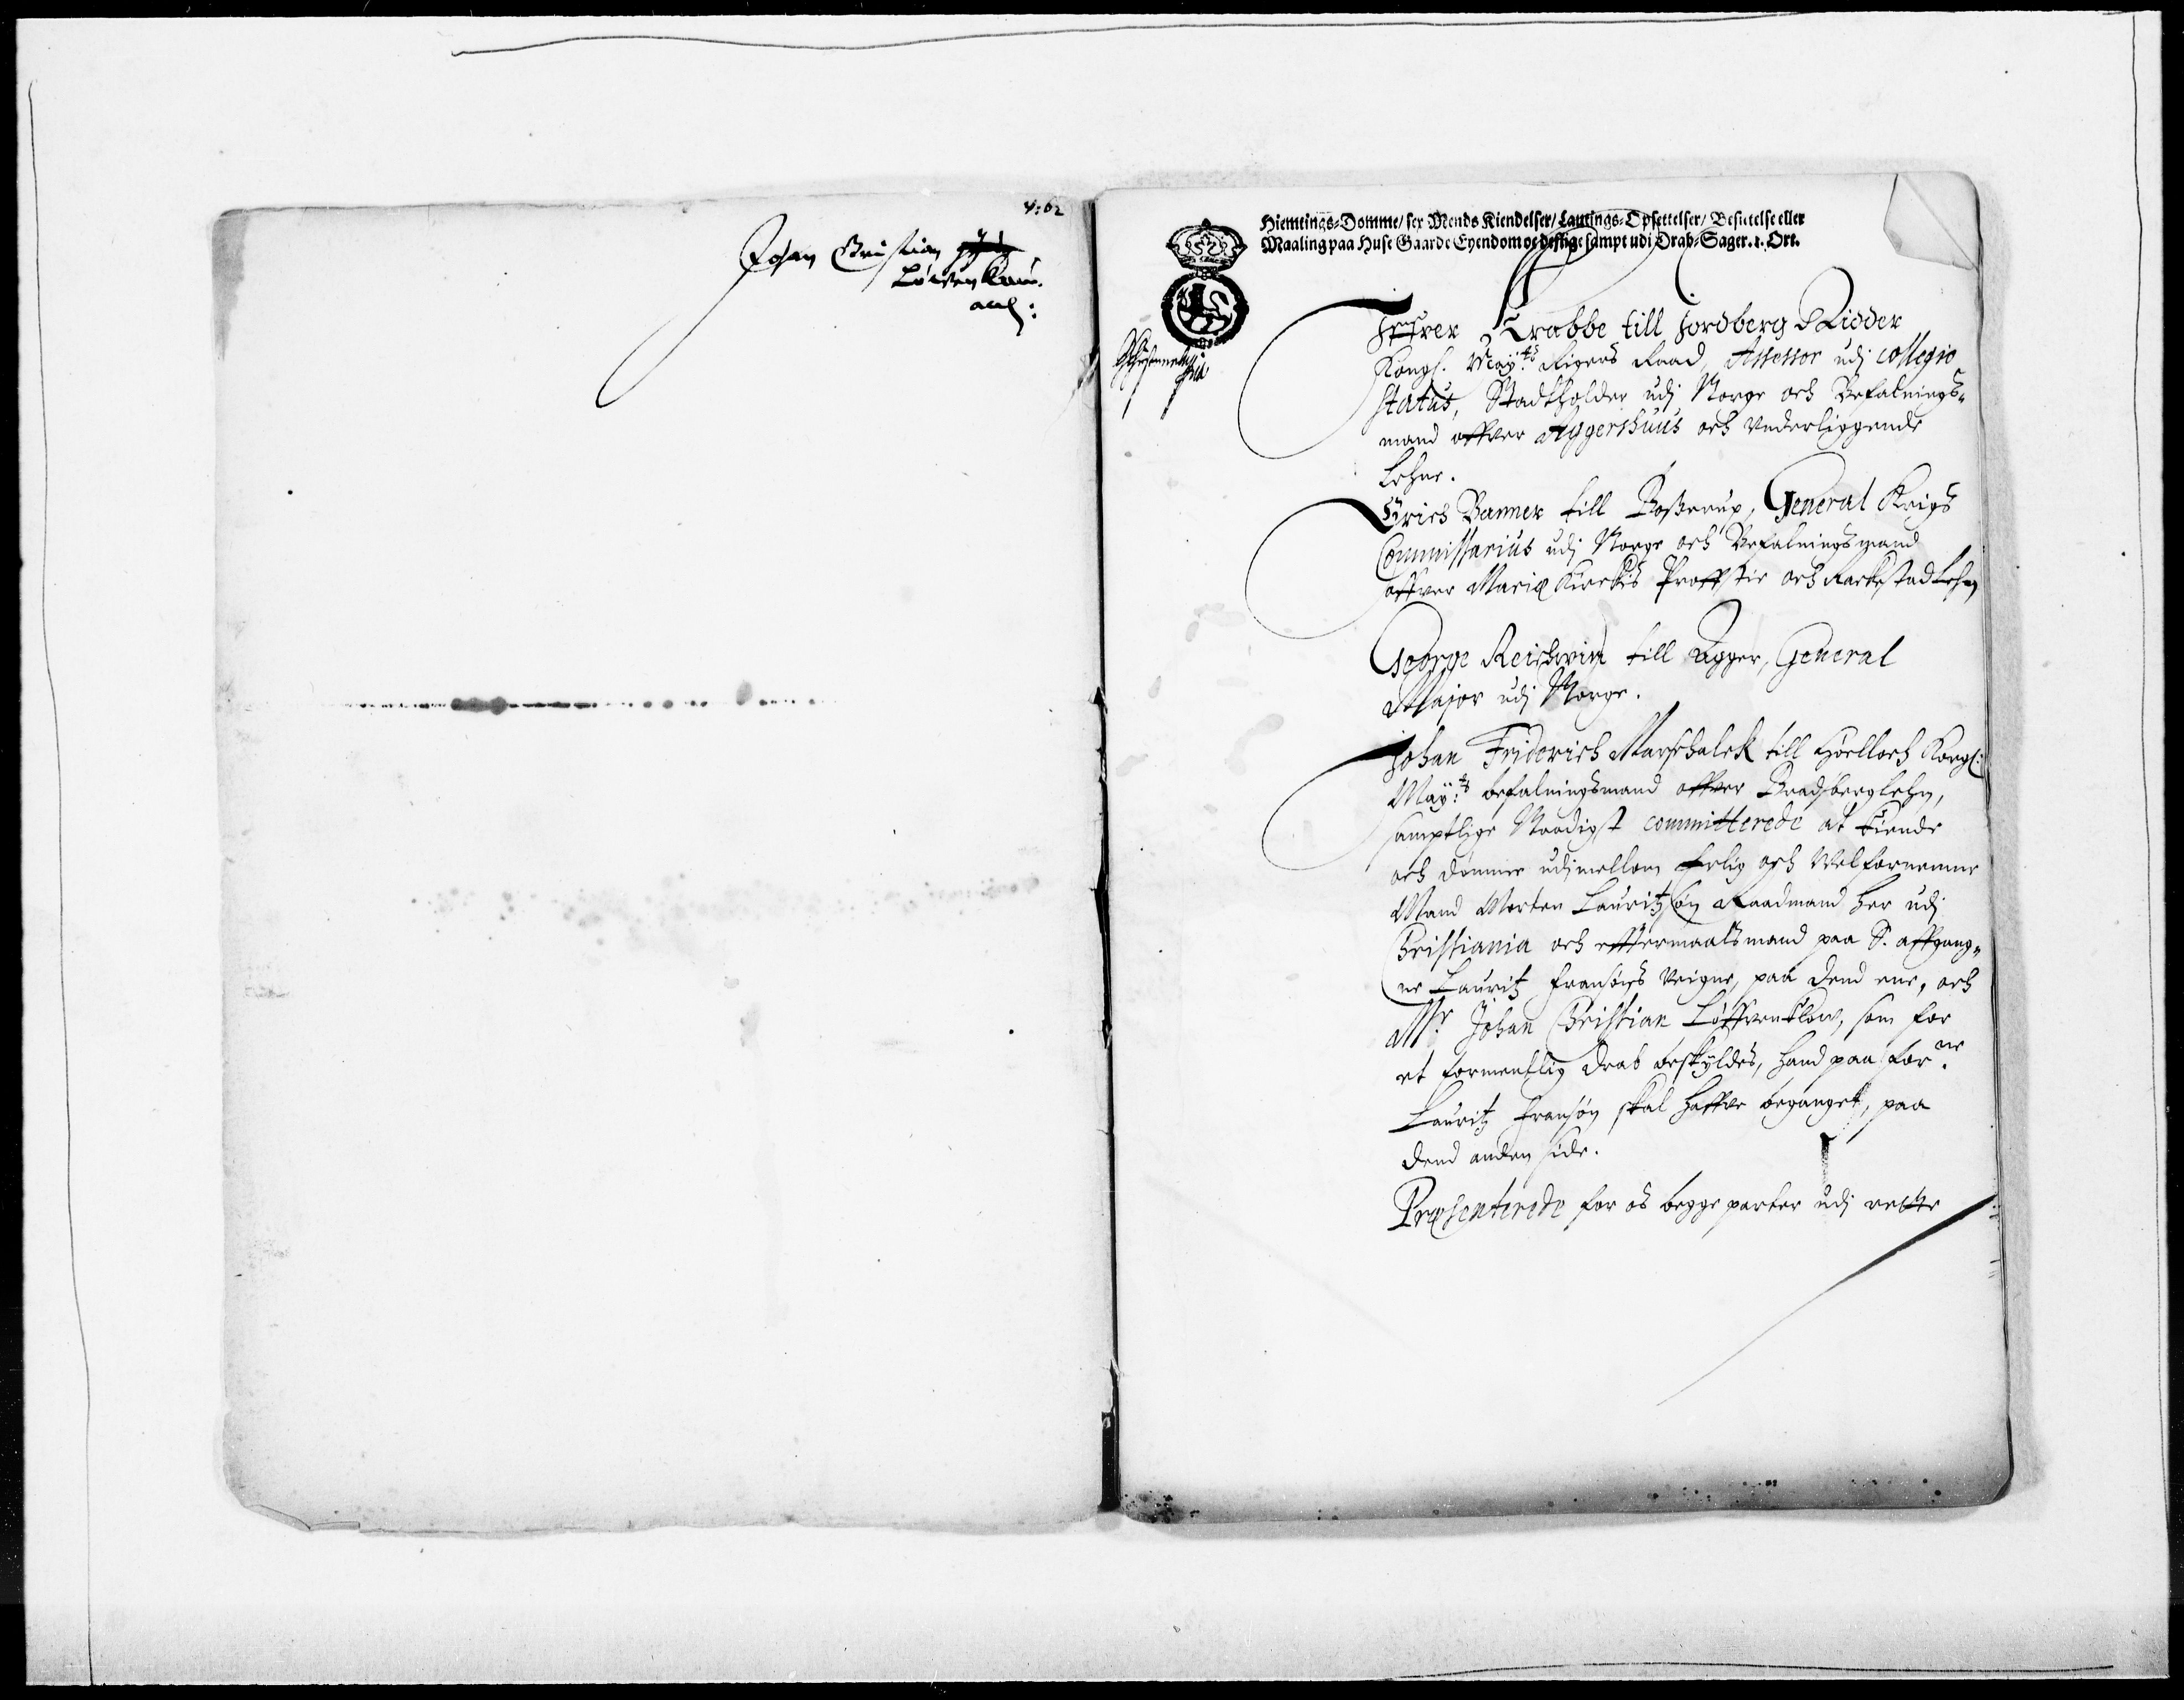 4:62
Johan Christian
Løwenklau
anl:
Hiemtings-Domme/ sex Mends Kiendelser/ Lantings-Opsettelser/ Besictelse eller
Maaling paa Huse Gaarde Eyendom oc deslige sampt udi Drab-Sager. 1. Ort.
Iffver Krabbe till Jordberg Ridder
Kongl. May:ts Rigens Raad, Assessor udj collegio
status, Stadtholder udj Norge och Befalnings-
mand offver Aggershuus och Underliggende
Lehne.
Erich Banner till Boßerup, General Krigs
Commissarius udj Norge och Befalningsmand
offver Mariæ Kirckis Proffstie och Rackestad Lehn
George Reichwin till Agger, General
Major udj Norge.
Johan Friderich Marschalck till Hoelloch Kongl:
May:ts befalningsmand offver Bradsberg Lehn,
samptlige Naadigst committerede at kiende
och dømme udjmellom Erlig och Welfornemme
Mand Morten Lauritzsøn Raadmand her udj
Christiania och efftermaalsmand paa S. affgang-
ne Lauritz Fransøns Veigne, paa dend ene, och
Mr. Johan Christian Løffvenklow, som for
et formentlig drab beskyldes, hand paa for:ne
Lauritz Fransøn skal haffve beganget, paa
dend anden side.
Præsenterede for os begge parter udj rette